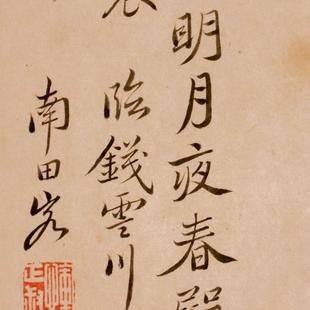 明月夜春殿
臨錢霅川
南田客